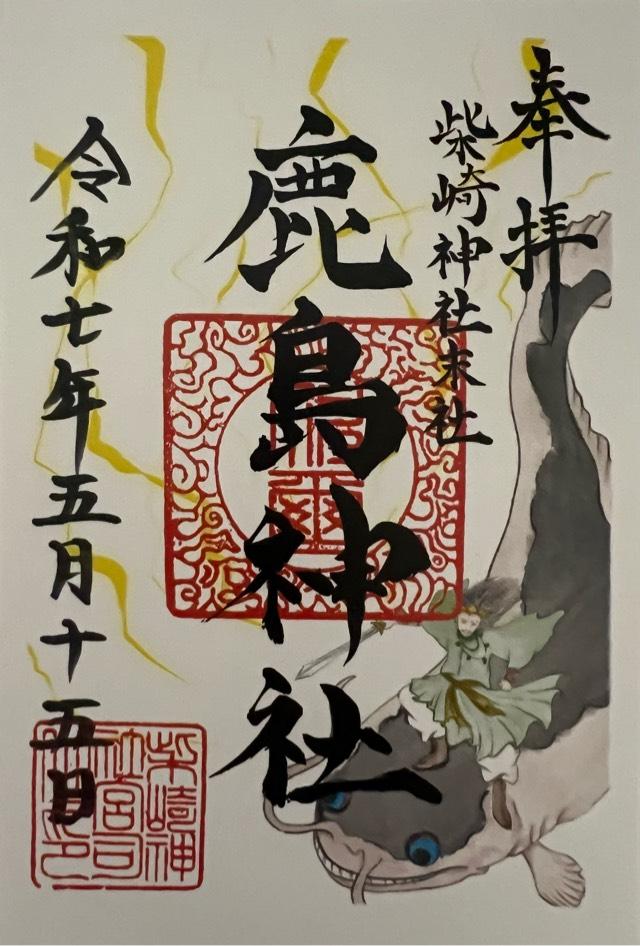 奉拝
柴崎神社末社
鹿島神社
令和七年五月十五日
柴崎神
社宮司